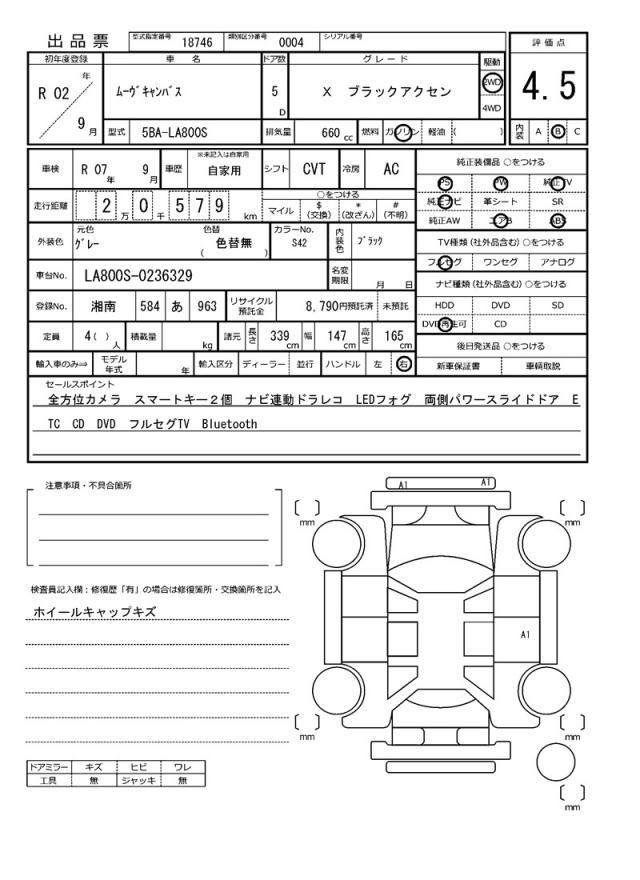 出品票 型式指定番号 18746 類別区分番号 0004 シリアル番号
評価点
初年度登録 車名 ドア数 グレード 駆動
R 02 年 9 月 ﾑｰヴｷｬﾝバス 5 D X ブラックアクセン 2WD 4WD
4.5
型式 5BA-LA800S 排気量 660 cc 燃料 ガソリン 軽油 ( )
内装 A B C
車検 R 07 年 9 月 車歴 ※未記入は自家用 自家用 シフト CVT 冷房 AC
純正装備品 ○をつける
PS PW 純正TV
純正ナビ 革シート SR
純正AW エアB ABS
走行距離 2 万 0 千 5 7 9 km
○をつける
マイル $(交換) *(改ざん) #(不明)
外装色 元色 ｸﾞﾚｰ 色替 色替無 ( ) カラーNo. S42 内装色 ﾌﾞﾗｯｸ
TV種類(社外品含む)○をつける
フルセグ ワンセグ アナログ
車台No. LA800S-0236329 名変期限 月 日
ナビ種類(社外品含む)○をつける
HDD DVD SD
DVD再生可 CD
登録No. 湘南 584 あ 963 リサイクル預託金 8,790円預託済 未預託
定員 4( ) 人 積載量 kg 諸元 長さ 339 cm 幅 147 cm 高さ 165 cm
後日発送品 ○をつける
新車保証書 車輌取説
輸入車のみ⇒ モデル年式 年 輸入区分 ディーラー 並行 ハンドル 左 右
セールスポイント
全方位カメラ スマートキー２個 ナビ連動ドラレコ LEDフォグ 両側パワースライドドア E
TC CD DVD フルセグTV Bluetooth
注意事項・不具合箇所
検査員記入欄：修復歴「有」の場合は修復箇所・交換箇所を記入
ホイールキャップキズ
ドアミラー キズ ヒビ ワレ
工具 無 ジャッキ 無
A1 A1
mm mm
A1
mm mm
mm